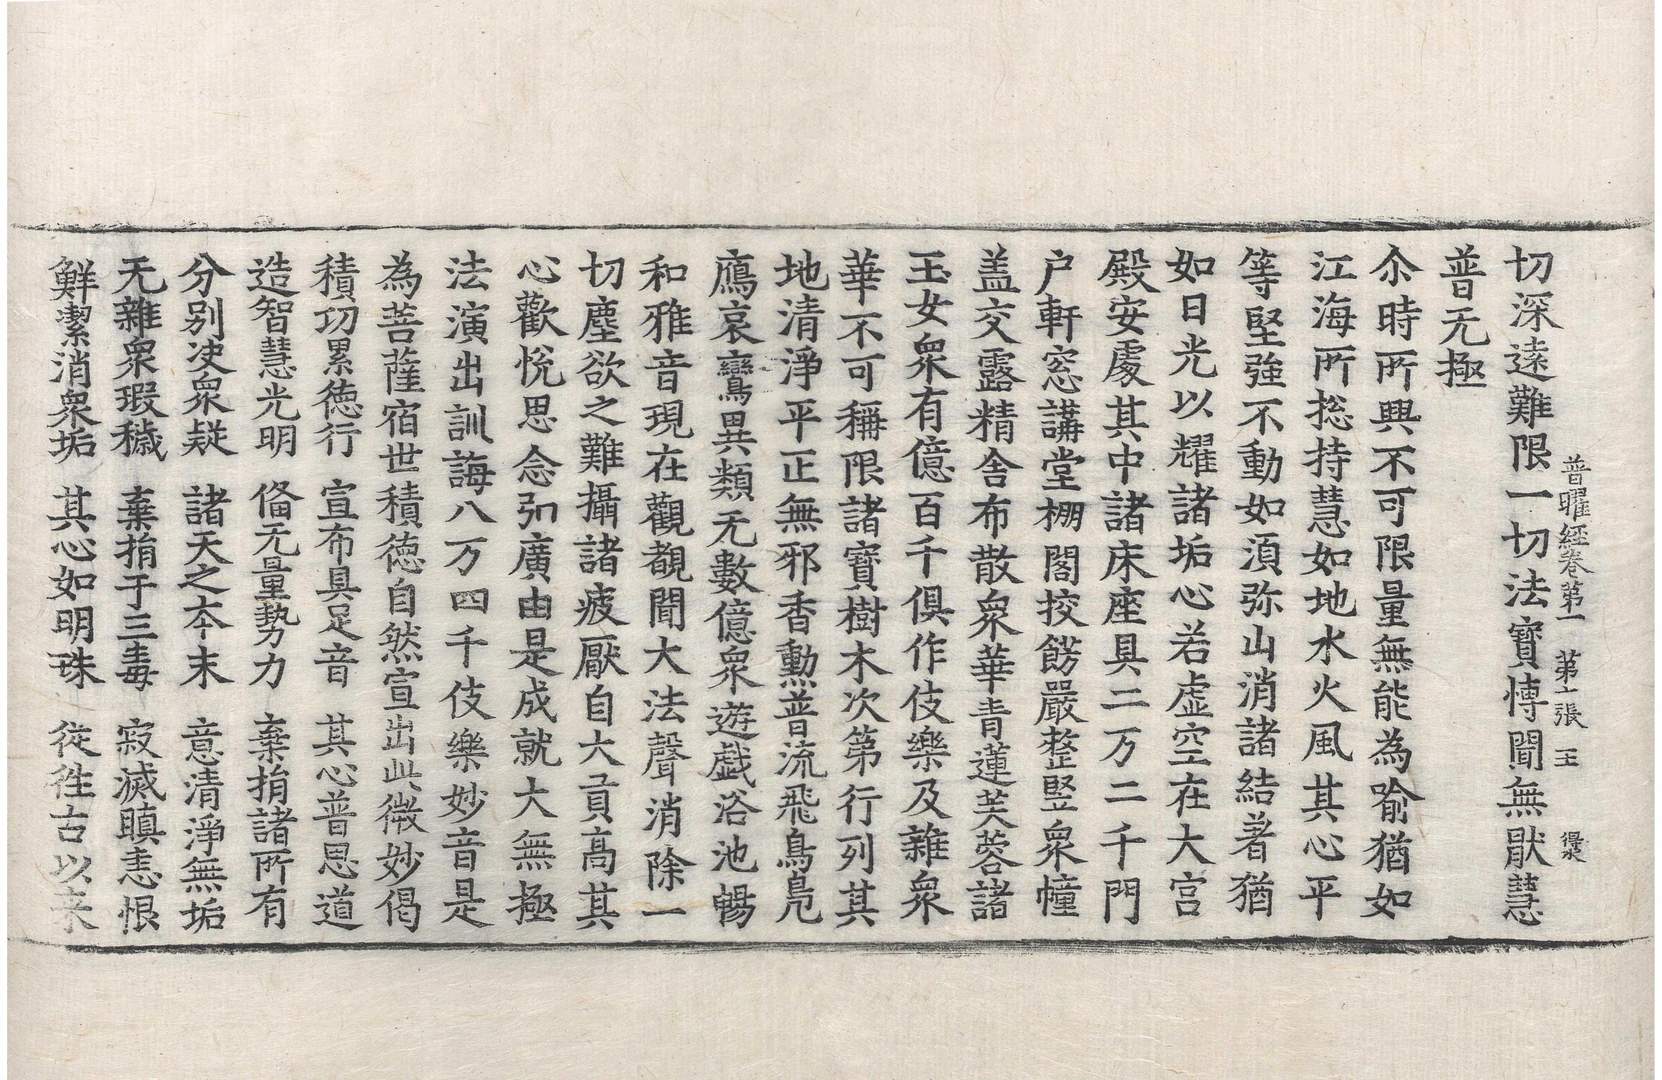 切深遠難限一切法寶愽聞無猒慧
普曜經卷第一　第六張　玉
普无極
尒時所興不可限量無能為喻猶如
江海所捴持慧如地水火風其心平
等堅強不動如湏弥山消諸結著猶
如日光以耀諸垢心若虛空在大宫
殿安處其中諸床座具二万二千門
户軒窓講堂棚閣挍餝嚴整竪衆幢
盖交露精舍布散衆華青蓮芙蓉諸
玉女衆有億百千俱作伎樂及雜衆
華不可稱限諸寶樹木次第行列其
地清淨平正無邪香勲普流飛鳥鳧
鴈哀鸞異類无數億衆遊戲浴池暢
和雅音現在觀覩聞大法聲消除一
切塵欲之難攝諸疲厭自大貢高其
心歡恱思念弘廣由是成就大無極
法演出訓誨八万四千伎樂妙音是
為菩薩宿世積德自然宣出此微妙偈
積功累德行　宣布具足音　其心普思道
造智慧光明　俻无量勢力　棄捐諸所有
分別決衆疑　諸天之夲末　意清淨無垢
无雜衆瑕穢　棄捐于三毒　寂滅瞋恚恨
鮮潔消衆垢　其心如明珠　從徃古以来